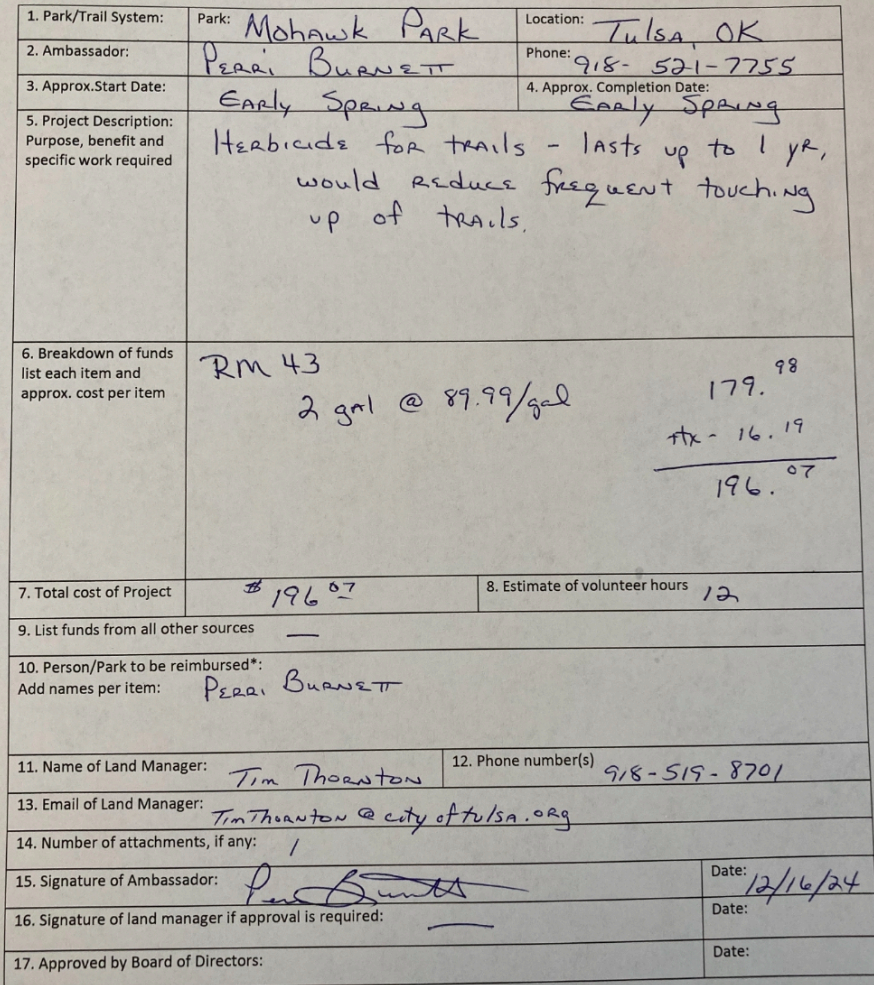 1. Park/Trail System: Park: Mohawk Park Location: Tulsa, OK
2. Ambassador: Perri Burnett Phone: 918- 521-7755
3. Approx.Start Date: Early Spring 4. Approx. Completion Date: Early Spring
5. Project Description:
Purpose, benefit and
specific work required
Herbicide for trails - lasts up to 1 yr,
would reduce frequent touching
up of trails.
6. Breakdown of funds
list each item and
approx. cost per item
RM 43
2 gal @ 89.99/gal
179.98
tax - 16.19
196.07
7. Total cost of Project $196 07 8. Estimate of volunteer hours 12
9. List funds from all other sources —
10. Person/Park to be reimbursed*:
Add names per item: Perri Burnett
11. Name of Land Manager: Tim Thornton 12. Phone number(s) 918-519-8701
13. Email of Land Manager: TimThornton@cityoftulsa.org
14. Number of attachments, if any: 1
15. Signature of Ambassador: Perri Burnett Date: 12/16/24
16. Signature of land manager if approval is required: — Date:
17. Approved by Board of Directors: Date: